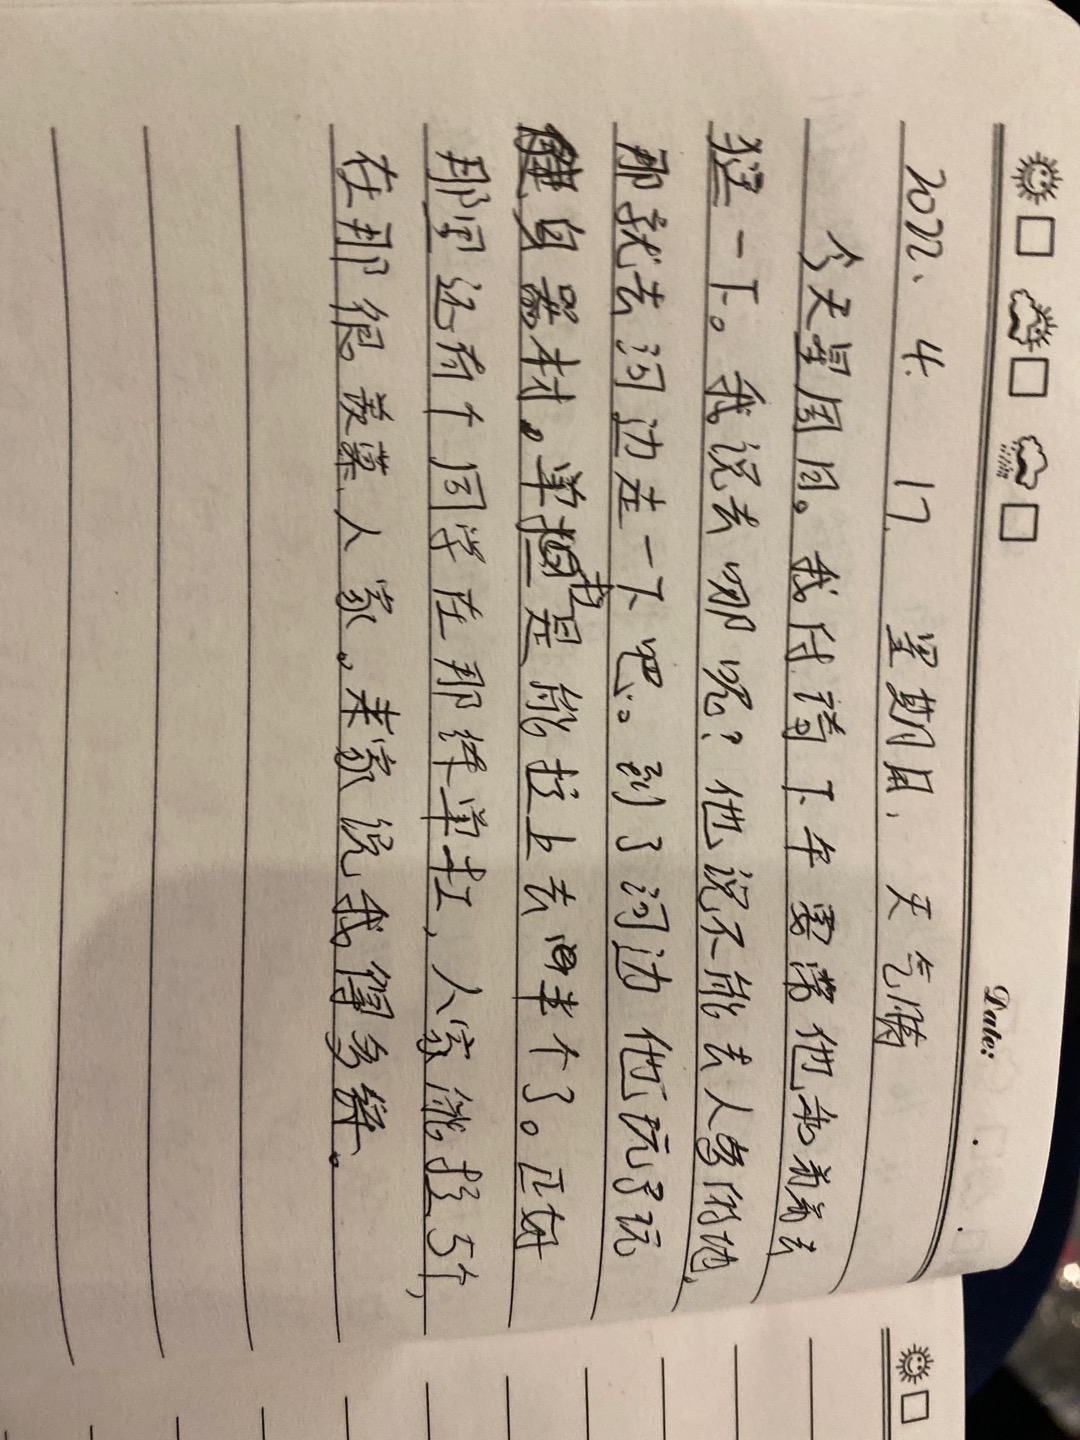 Date:
2022、4、17 星期日、天气晴
今天星周日。我付诗下午要带他和弟弟去
狂一下。我说去哪呢?他说不能去人多的地,
那就去河边走一下吧。到了河边他玩了玩
健身器材。单杠是能拉上去半个了。正好
那里还有个同学在那练单杠,人家能拉5个,
在那很羡慕人家。来家说我得多练。